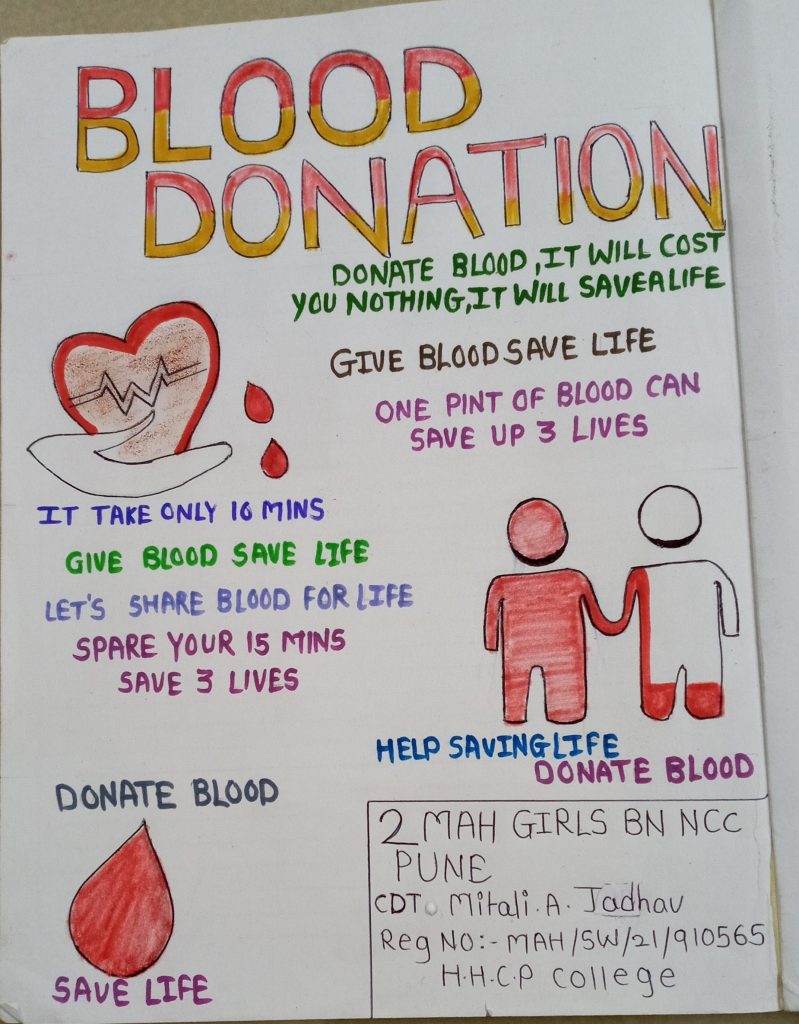 BLOOD
DONATION
DONATE BLOOD, IT WILL COST
YOU NOTHING, IT WILL SAVE A LIFE
GIVE BLOOD SAVE LIFE
ONE PINT OF BLOOD CAN
SAVE UP 3 LIVES
IT TAKE ONLY 10 MINS
GIVE BLOOD SAVE LIFE
LET'S SHARE BLOOD FOR LIFE
SPARE YOUR 15 MINS
SAVE 3 LIVES
HELP SAVING LIFE
DONATE BLOOD
DONATE BLOOD
SAVE LIFE
2 MAH GIRLS BN NCC
PUNE
CDT. Mitali. A. Jadhav
Reg NO:- MAH/SW/21/910565
H.H.C.P college